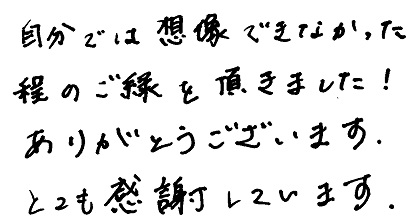 自分では想像できなかった
程のご縁を頂きました!
ありがとうございます.
とても感謝しています.